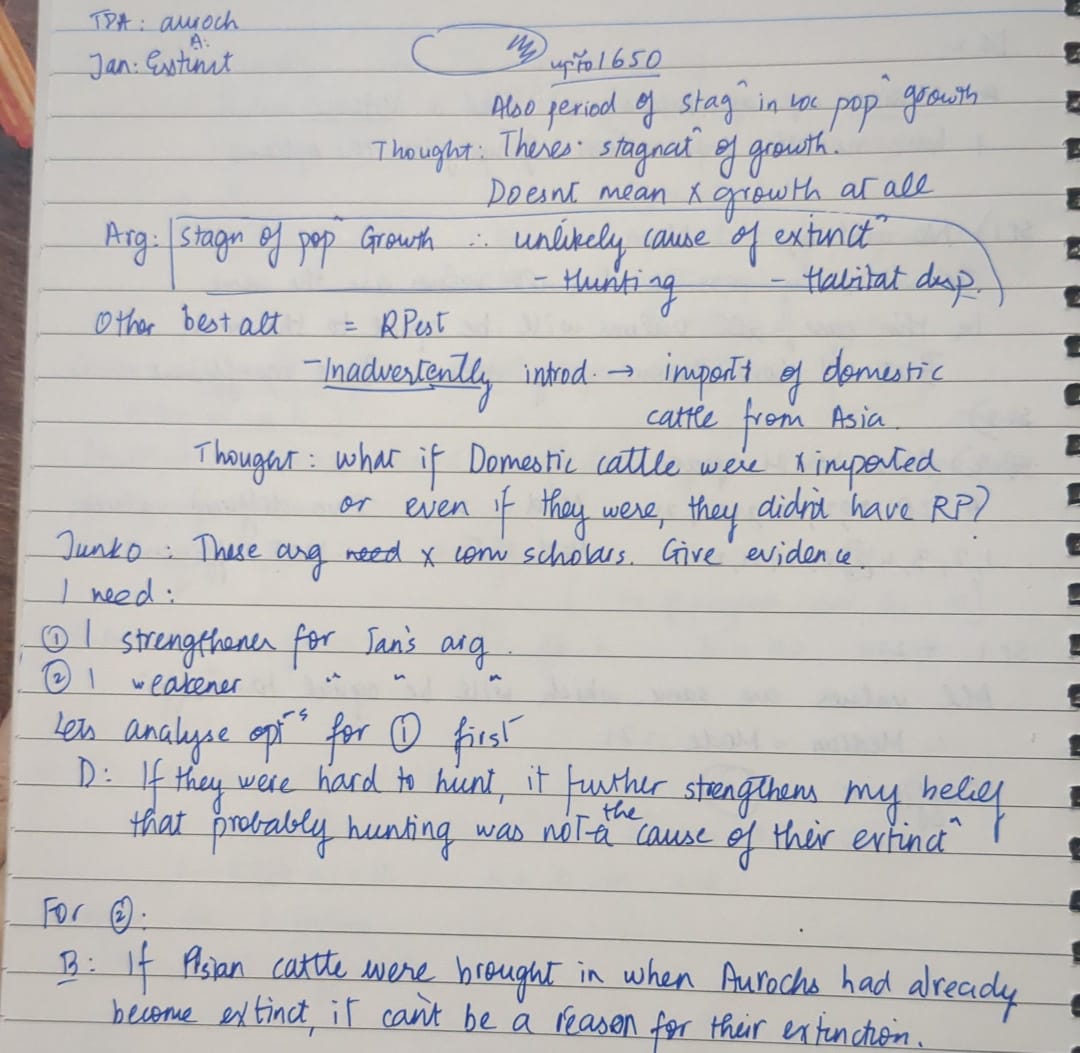 TPA: auroch
A:
Jan: Extinct
upto 1650
Also period of stag^n in loc pop^n growth
Thought: Theres stagnat^n of growth.
Doesnt mean x growth at all
Arg: Stagn of pop^n Growth ∴ unlikely cause of extinct^n
- Hunting - Habitat disp.
Other best alt = RPest
- Inadvertently introd. → import of domestic
cattle from Asia.
Thought: what if Domestic cattle were x imported
or even if they were, they didn't have RP?
Junko: These arg need x conv scholars. Give evidence.
I need:
① 1 strengthener for Jan's arg.
② 1 weakener " "
Lets analyse opt^ns for ① first
D: If they were hard to hunt, it further strengthens my belief
that probably hunting was not a the cause of their extinct^n
For ②:
B: If Asian cattle were brought in when Aurochs had already
become extinct, it can't be a reason for their extinction.